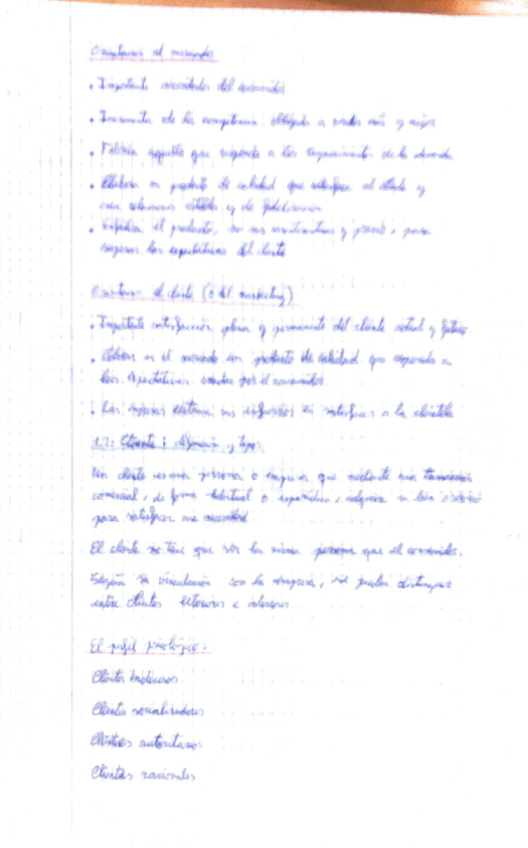 Orientación al mercado
• Importante necesidades del consumidor
• Incremento de la competencia obligada a vender más y mejor
• Fabrican aquello que responde a los requerimientos de la demanda
• Elabora un producto de calidad que satisface al cliente y
crea relaciones estables y de fidelización
el producto, y precio, para
las expectativas del cliente
Orientación al cliente (o del marketing)
• Importante satisfacción plena y permanente del cliente actual y futuro
• en el mercado un producto de calidad que responda a
las expectativas por el consumidor.
• Las sus esfuerzos en satisfacer a la clientela
1.2. Cliente: definición y tipos
Un cliente es una persona o empresa que mediante una transacción
comercial, de forma habitual o esporádica, adquiere un bien o servicio
para satisfacer una necesidad
El cliente no tiene que ser la misma persona que el consumidor.
Según su vinculación con la empresa, se pueden distinguir
entre clientes externos e internos
El perfil psicológico:
Clientes indecisos
Clientes socializadores
Clientes autoritarios
Clientes racionales